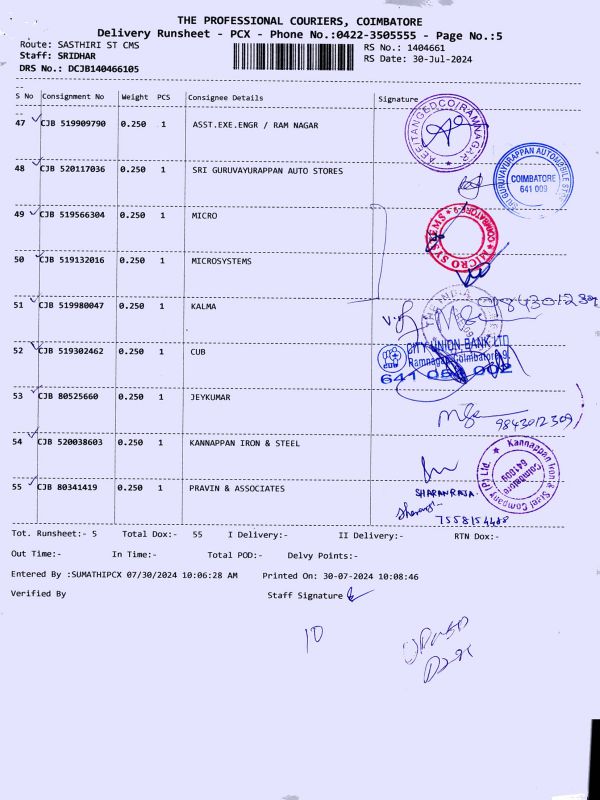 THE PROFESSIONAL COURIERS, COIMBATORE
Delivery Runsheet - PCX - Phone No.:0422-3505555 - Page No.:5
Route: SASTHIRI ST CMS
RS No.: 1404661
Staff: SRIDHAR
RS Date: 30-Jul-2024
DRS No.: DCJB140466105
S No Consignment No Weight PCS Consignee Details Signature
47 CJB 519909790 0.250 1 ASST.EXE.ENGR / RAM NAGAR
AEE/TANGEDCO/RAMNAGAR
48 CJB 520117036 0.250 1 SRI GURUVAYURAPPAN AUTO STORES
SRI GURUVAYURAPPAN AUTOMOBILE STORES
COIMBATORE
641 009
49 CJB 519566304 0.250 1 MICRO
MICRO SYSTEMS
COIMBATORE-9
50 CJB 519132016 0.250 1 MICROSYSTEMS
51 CJB 519980047 0.250 1 KALMA
52 CJB 519302462 0.250 1 CUB
CITY UNION BANK LTD
CUB
Ramnagar Coimbatore 9.
53 CJB 80525660 0.250 1 JEYKUMAR
9843012309
54 CJB 520038603 0.250 1 KANNAPPAN IRON & STEEL
Kannappan Iron & Steel Company (P) Ltd.
Coimbatore
641009
55 CJB 80341419 0.250 1 PRAVIN & ASSOCIATES
SHARANRAJA
Tot. Runsheet:- 5 Total Dox:- 55 I Delivery:- II Delivery:- RTN Dox:-
Out Time:- In Time:- Total POD:- Delvy Points:-
Entered By :SUMATHIPCX 07/30/2024 10:06:28 AM Printed On: 30-07-2024 10:08:46
Verified By Staff Signature
10